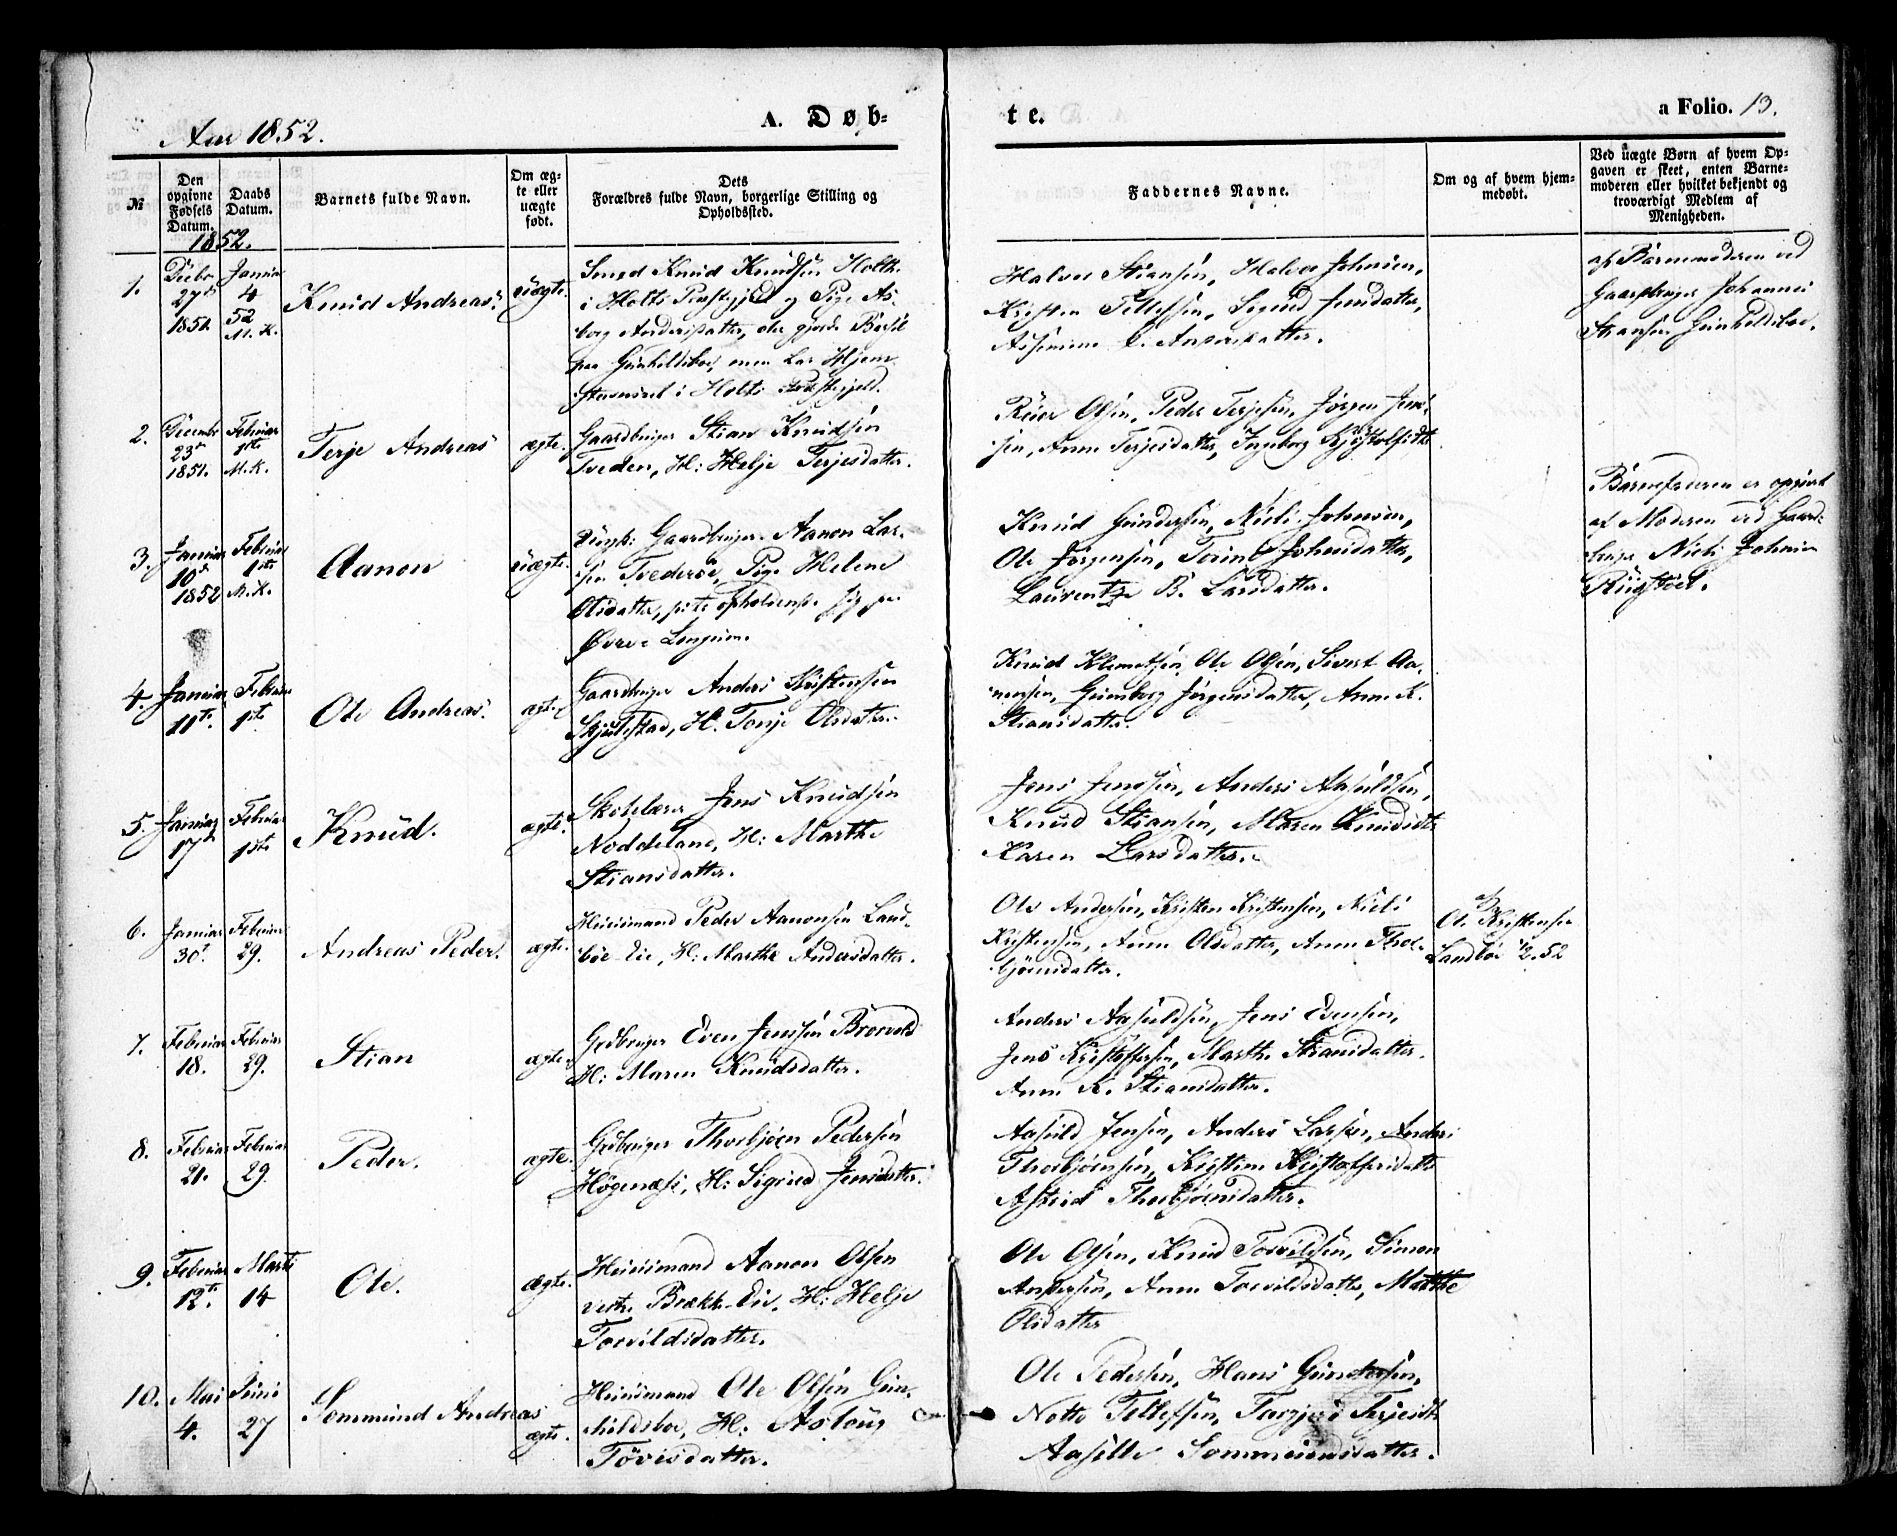 Aar 1852.
A. Døb-
te.
a Folio. 13.
№
Den opgivne Fødsels Datum.
Daabs Datum.
Barnets fulde Navn.
Om ægte eller uægte født.
Dets Forældres fulde Navn, borgerlige Stilling og Opholdssted.
Faddernes Navne.
Om og af hvem hjemmedøbt.
Ved uægte Børn af hvem Opgaven er skeet, enten Barnemoderen eller hvilket bekjendt og troværdigt Medlem af Menigheden.
1852.
1.
Decbr
27de
1851.
Januar
4
52
M. K.
Knud Andreas.
uægte.
Smed Knud Knudsen Holte
i Holts Præstgjeld og Pige As-
borg Andersdatter, der gjorde Barsel
paa Gunhildsboe, men har Hjem-
i Holts Præstegjeld.
Halvor Stiansen, Halvor Johnsen,
Kristen Tellefsen, Sigrid Jensdatter,
Andersdatter.
af Barnemoderen ved
Gaardbruger Johannes
Stiansen Gunhildsboe.
2.
December
23de
1851.
Februar
1ste
M. K.
Terje Andreas
ægte.
Gaardbruger Stian Knudsen
Tveden, H: Helje Terjesdatter.
Reier Olsen, Peder Terjesen, Jørgen Jen-
sen, Anne Terjesdatter, Ingeborg
3.
Januar
10de
1852
Februar
1ste
M. K.
Aanon
uægte.
Gaardbruger Aanon Lar-
sen Tvederøe, Pige Helene
Olsdatter, opholdende sig paa
Øvre Longum.
Knud Gundersen, Niels Johnsen,
Ole Jørgensen, Torine Johnsdatter,
Laurentze B. Larsdatter.
Barnefaderen er opgivet
af Moderen ved Gaard-
bruger Niels Johnsen
Rugstoel.
4.
Januar
11te.
Februar
1ste
Ole Andreas.
ægte
Gaardbruger Anders Kristensen
Skjulestad, H: Tonje Olsdatter.
Knud Klemetsen, Ole Olsen, Sivert Aa-
nonsen, Gunborg Jørgensdatter, Anne K.
Stiansdatter.
5.
Januar
17de
Februar
1ste
Knud.
ægte.
Skolelærer Jens Knudsen
Noddeland, H: Marthe
Stiansdatter.
Jens Jensen, Anders Aasuldsen,
Knud Stiansen, Maren Knudsdtr
Karen Larsdatter.
6.
Januar
30te.
Februar
29.
Andreas Peder.
ægte.
Huusmand Peder Aanonsen Land-
bøe Eie, H: Marthe Andersdatter.
Ole Andersen, Kristen Kristensen, Niels
Kristensen, Anne Olsdatter, Anne Thor-
bjørnsdatter.
Ole Kristensen
Landbøe 52
7.
Februar
18.
Februar
29.
Stian
ægte.
Gdbruger Even Jenssen Brovold
H: Maren Knudsdatter.
Anders Aasuldsen, Jens Evensen,
Jens Kristoffersen, Marthe Stiansdatter.
Anne K. Stiansdatter.
8.
Februar
21.
Februar
29.
Peder.
ægte.
Gdbruger Thorbjørn Pedersen
Høgenæs, H: Sigrid Jensdatter.
Aasuld Jensen, Anders Larsen, Anders
Thorbjørnsen, Kristine Kristoffersdatter
Astrid Thorbjørnsdatter.
9.
Februar
12te.
Marts
14
Ole.
ægte.
Huusmand Aanon Olsen
vestre Brække Eie, H: Helje
Torvildsdatter.
Ole Olsen, Knud Torvildsen, Simon
Andersen, Anne Torvildsdatter, Marthe
Olsdatter
10.
Mai
4.
Juni
27
Sommund Andreas
ægte.
Huusmand Ole Olsen Gun-
hildsboe, H: Aslaug
Tovisdatter.
Ole Pedersen, Hans Gundersen,
Notto Tellefsen, Torgjer Terjesdtr
Aasille Sommundsdatter.